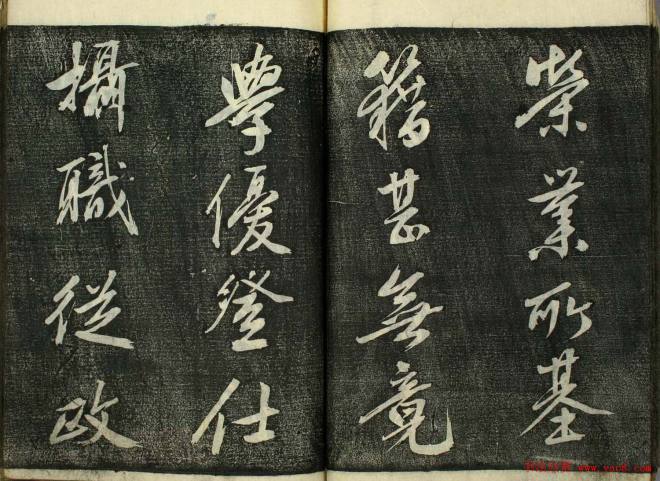 榮業所基
籍甚無竟
學優登仕
攝職從政